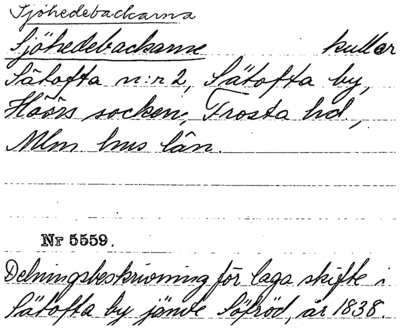 Sjöhedebackarna
Sjöhedebackarne kullar
Sätofta n:r 2, Sätofta by,
Höörs socken, Frosta hd,
Mlm hus län.
Nr 5559.
Delningsbeskrivning för laga skifte i
Sätofta by jämte Söfröd, år 1838.